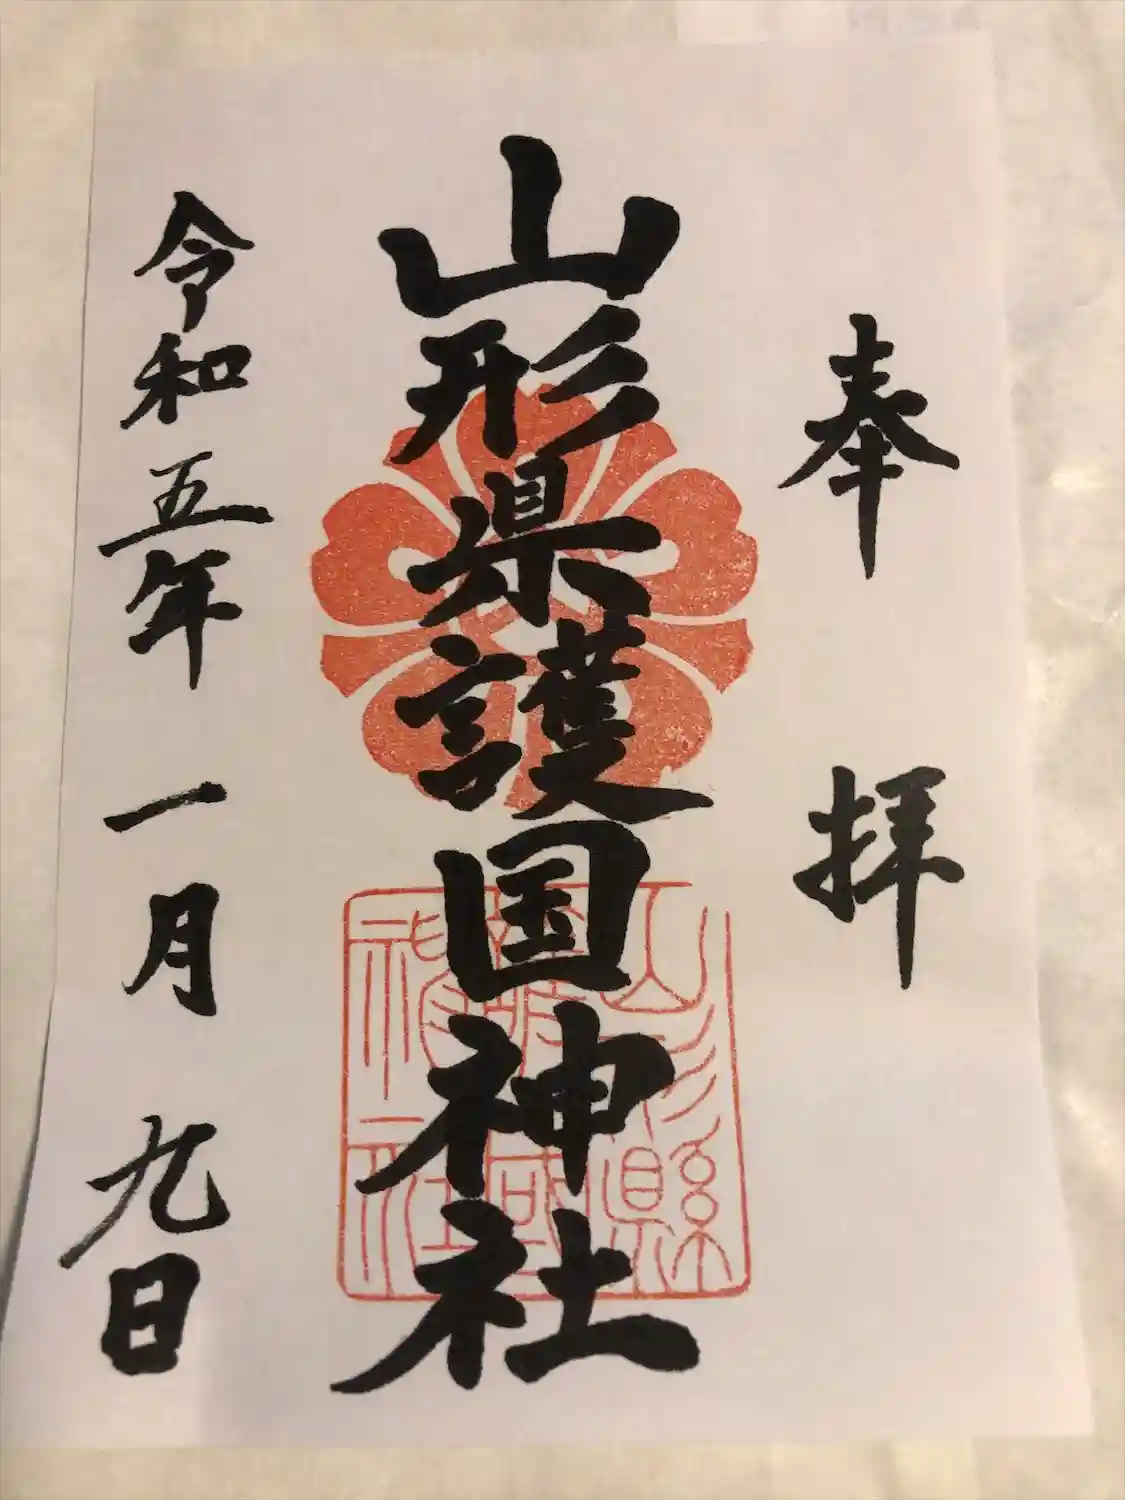 奉拝
山形県護国神社
山形縣護國神社
令和五年一月九日